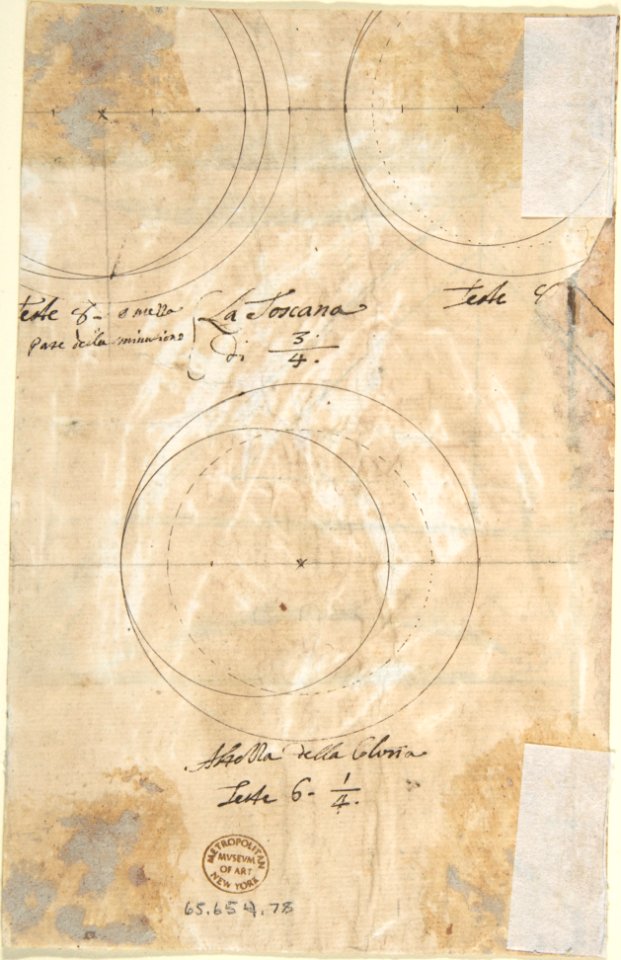 Teste 8 - e mezza
pare della minuzione
La Toscana
di 3/4.
Teste 8
della Gloria
Teste 6 - 1/4.
METROPOLITAN
MVSEVM
OF ART
NEW YORK
65.654.78